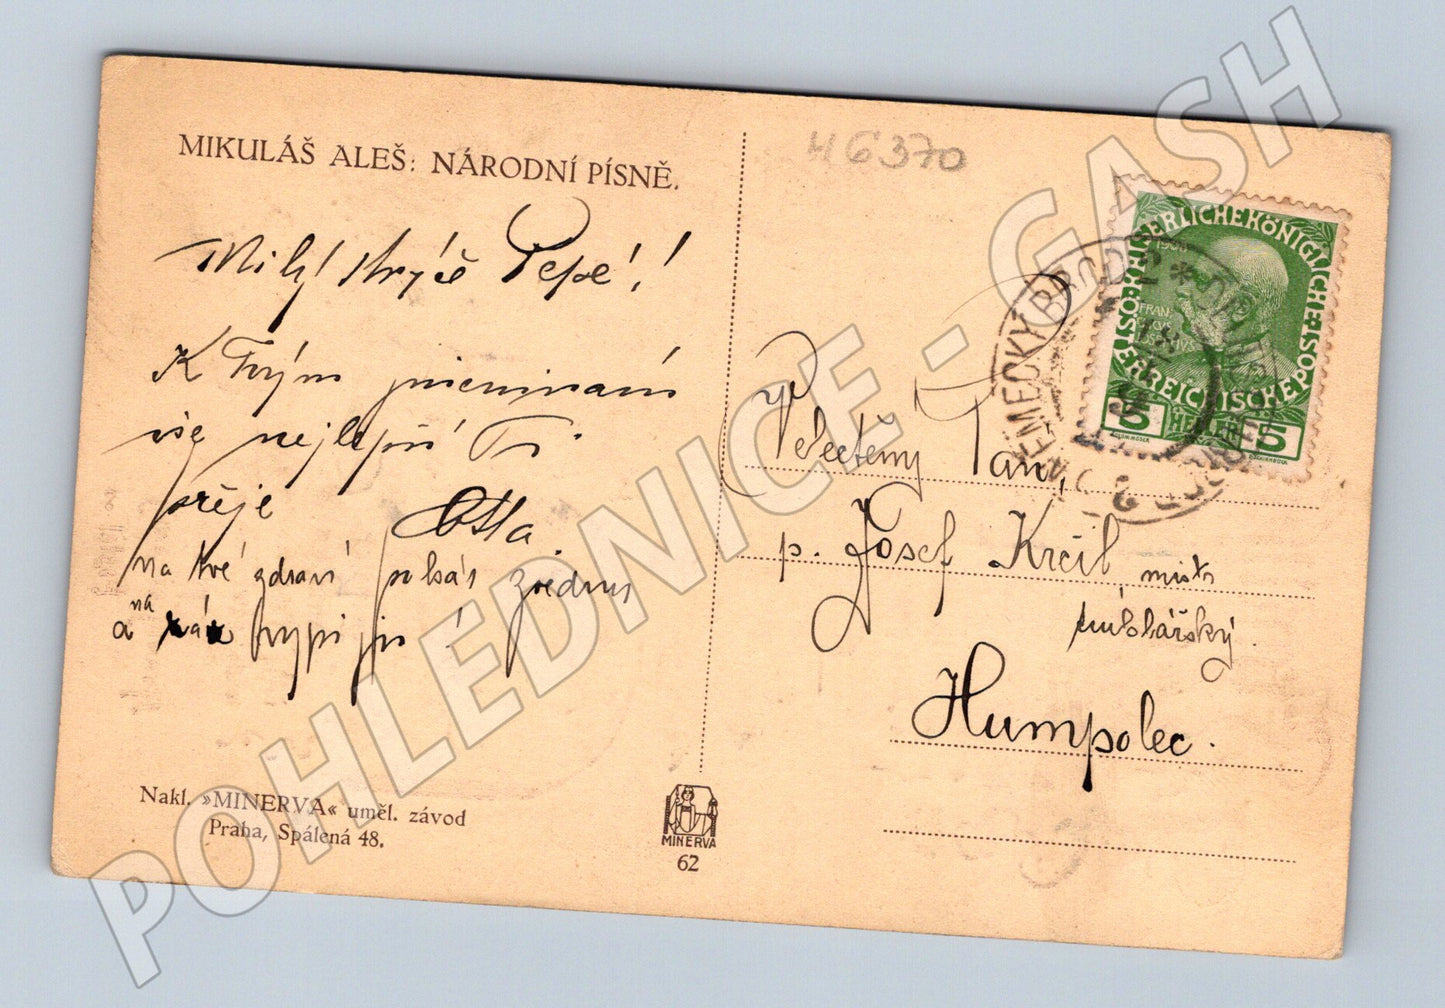 MIKULÁŠ ALEŠ: NÁRODNÍ PÍSNĚ.
46370
Milý strýče Pepo!
K Tvým jmeninám
vše nejlepší Ti
přeje Otta
na tvé zdraví pohár zvednu
a na vypiju
Nakl. »MINERVA« uměl. závod
Praha, Spálená 48.
MINERVA
62
KAISERLICHE KÖNIGLICHE ÖSTERREICHISCHE POST
5 HELLER 5
NĚMECKÝ BROD
Velectěný Pan,
p. Josef Krčil, mistr
truhlářský.
Humpolec.
POHLEDNICE - GASH